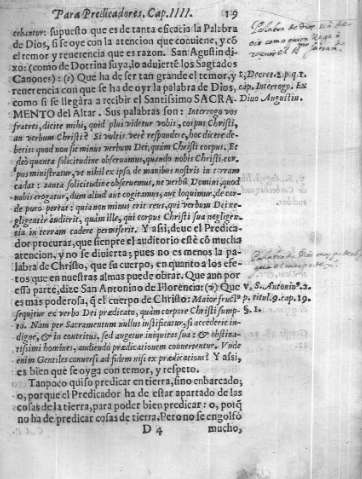 Para Predicadores. Cap. IIII. 19
supuesto que es de tanta eficacia la Palabra
de Dios, si se oye con la atencion que conuiene, y cõ
el temor y reuerencia que es razon. San Agustin di-
xo: (como de Dotrina suya, lo aduierte los Sagrados
Canones) : (1) Que ha de ser tan grande el temor, y
reuerencia con que se ha de oyr la palabra de Dios,
como si se llegára a recibir el Santissimo SACRA-
MENTO del Altar. Sus palabras son: Interrogo vos
fratres, dicite mihi, quid plus videtur vobis, corpus Christi,
an verbum Christi? Si vultis verè respondere, hoc dicere de-
betis quod non sit minus verbum Dei, quàm Christi corpus. Et
ideò quanta solicitudine obseruamus, quando nobis Christi cor-
pus ministratur, ve nihil ex ipso de manibus nostris in terram
cadat: tanta solicitudine obseruemus, ne verbũ Domini, quod
nobis erogatur, dum aliud aut cogitamus, aut loquimur, de cor-
de puro pereat: quia non minus erit reus, qui verbum Dei ne-
gligenter audierit, quàm ille, qui corpus Christi sua negligen-
tia in terram cadere permiserit. Y assi, deue el Predica-
dor procurar, que siempre el auditorio estè cõ mucha
atencion, y no se diuierta; pues no es menos la pa-
labra de Christo, que su cuerpo, en quanto a los efe-
tos que en nuestras almas puede obrar. Que aun por
esta parte, dize San Antonino de Florencia: (2) Que
es mas poderosa, q̃ el cuerpo de Christo: Maior fructus
sequitur ex verbo Dei prædicato, quàm corpore Christi sump-
to. Nam per Sacramentum nullus iustificatur, si accederet in-
digne, & in contritus, sed augetur iniquitas sua: & obstina-
tissimi homines, audiendo prædicationem conuertentur. Vnde
enim Gentiles conuersi ad fidem nisi ex prædicatione? Y assi,
es bien que se oyga con temor, y respeto.
Tanpoco quiso predicar en tierra, sino enbarcado;
o, porque el Predicador ha de estar apartado de las
cosas de la tierra, para poder bien predicar: o, porq̃
no ha de predicar cosas de tierra. Pero no se engolfó
D 4 mucho,
Palabra de Dios
1, Decret. 2. p. q. 1.
cap. Interrogo. Ex
Diuo Augustin.
v. S. Antonio. 2.
p. titul. 9. cap. 19.
§. 1.